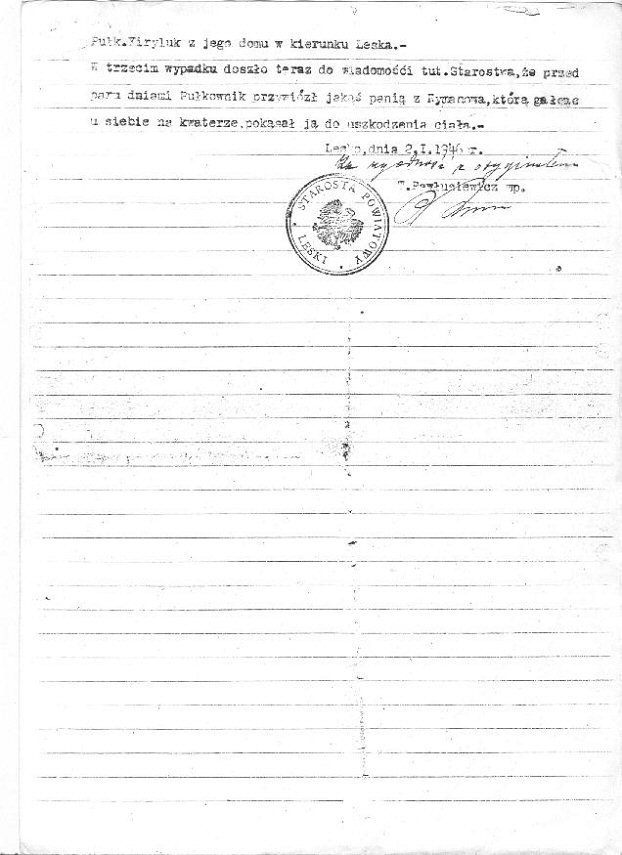 Pułk.Wiryluk z jego domu w kierunku Leska.-
W trzecim wypadku doszło teraz do wiadomośći tut.Starostwa,że przed
paru dniami Pułkownik przywiózł jakąś panią z Rymanowa,którą
u siebie na kwaterze,pokąsał ją do uszkodzenia ciała.-
Lesko,dnia 2.I.1946 r.
Za zgodność z oryginałem
wp.
STAROSTA POWIATOWY
LESKI